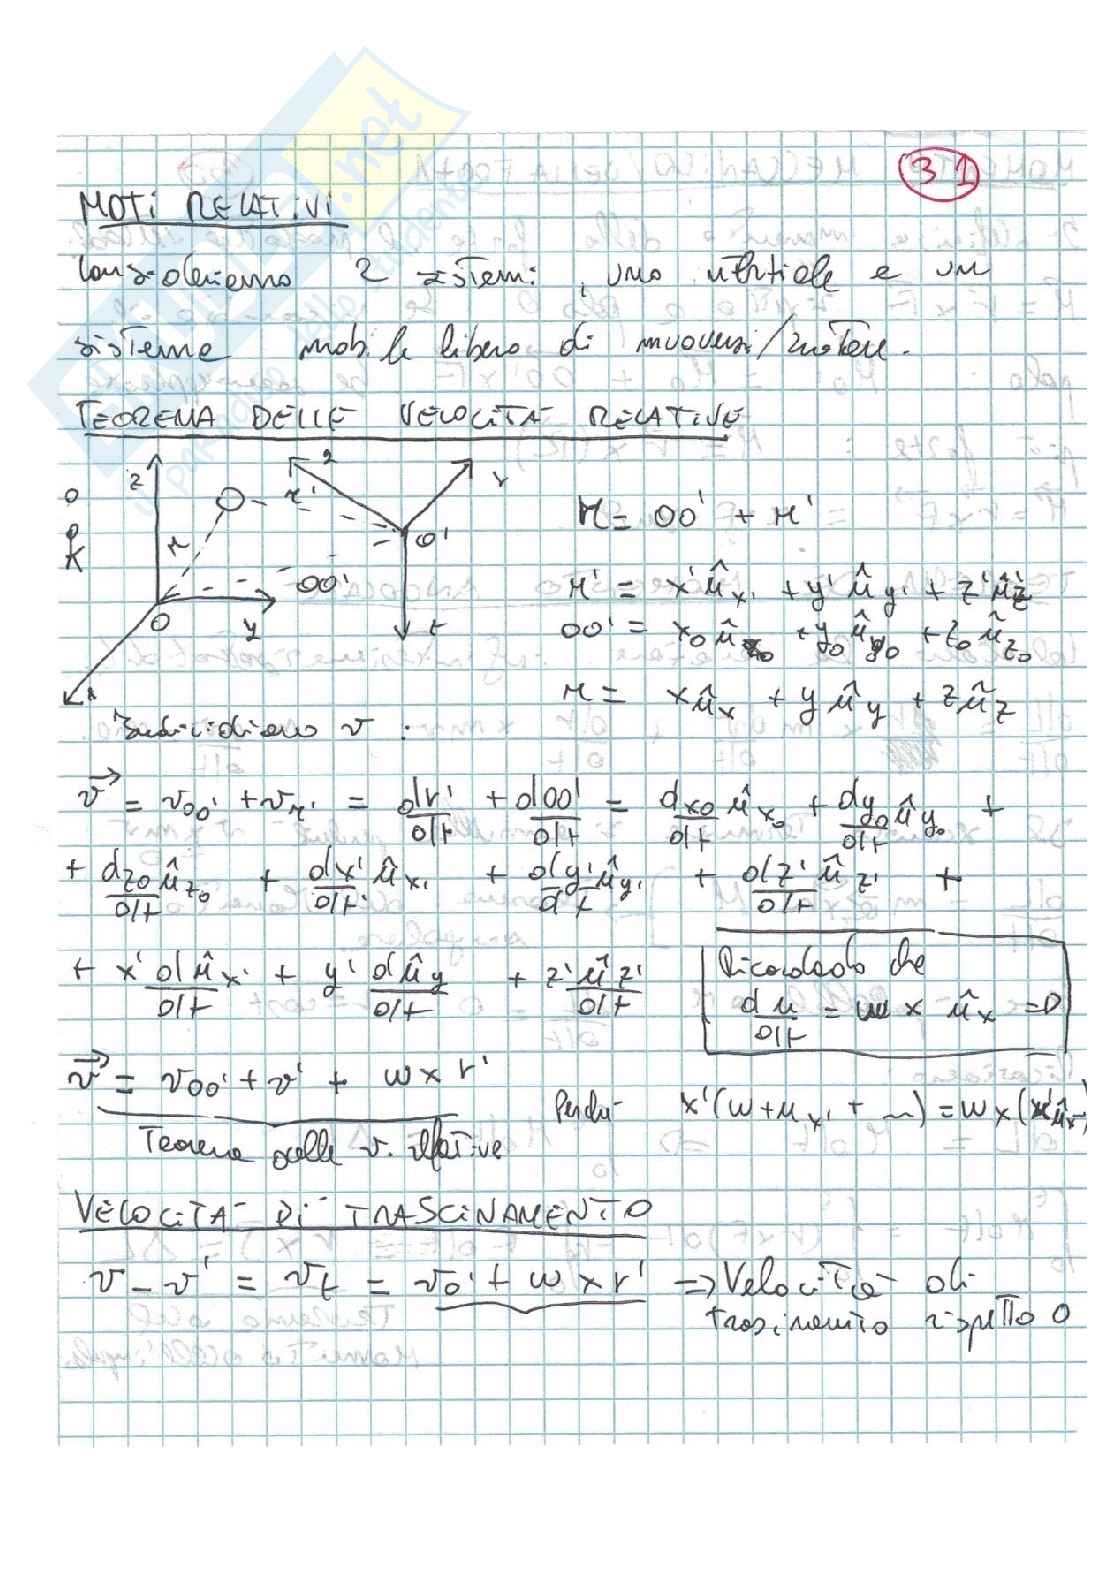 31
MOTI RELATIVI
Consideriamo 2 sistemi, uno inerziale e un
sistema mobile libero di muoversi/ruotare.
TEOREMA DELLE VELOCITÀ RELATIVE
z 2 r' r O' OO' O y t
r = OO' + r'
r' = x'û_x' + y'û_y' + z'û_z'
OO' = x_0 û_x_0 + y_0 û_y_0 + z_0 û_z_0
r = xû_x + yû_y + zû_z
v :
v⃗ = v_OO' + v_r' = dr'/dt + dOO'/dt = dx_0/dt û_x_0 + dy_0/dt û_y_0 +
+ dz_0/dt û_z_0 + dx'/dt û_x' + dy'/dt û_y' + dz'/dt û_z' +
+ x' dû_x'/dt + y' dû_y/dt + z' û_z'/dt
Ricordado che
du/dt = w x û_x = 0
v⃗ = v_OO' + v' + w x r'
Perché x'(w + u_x' + ...) = w x (x'û_x')
Teorema delle v. relative
VELOCITÀ DI TRASCINAMENTO
v - v' = v_t = v_o' + w x r' => Velocità di
trascinamento rispetto O